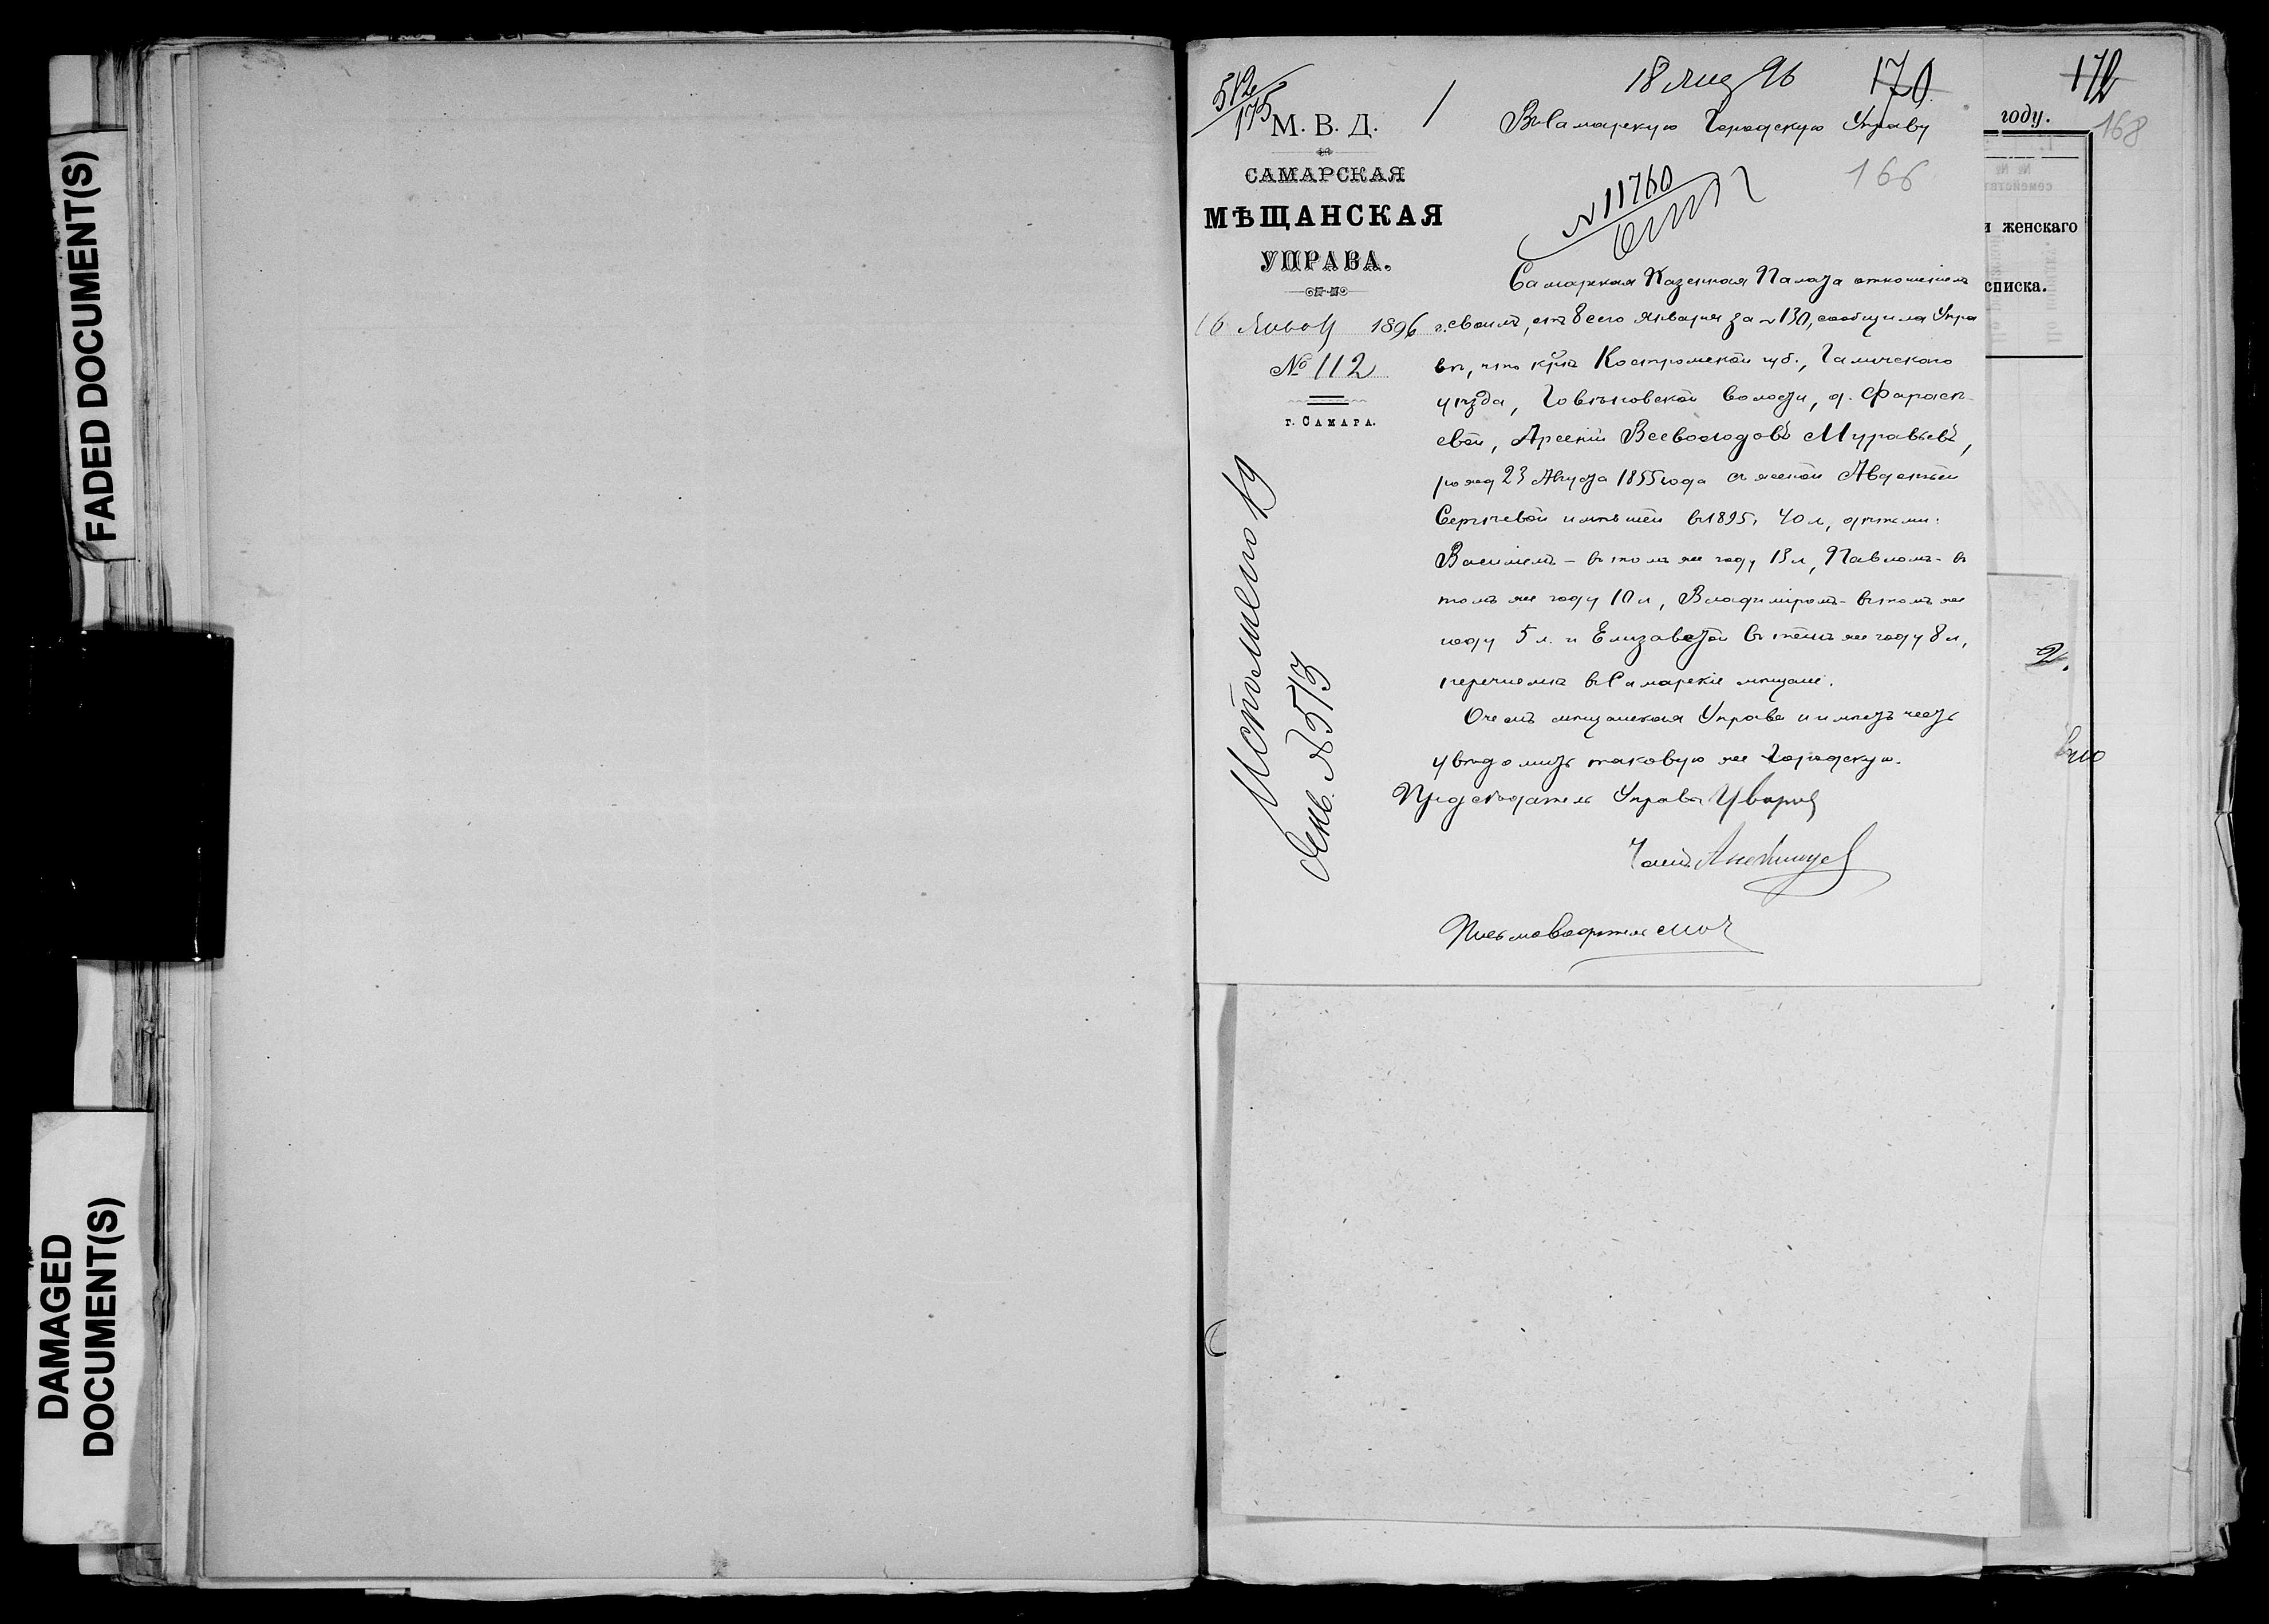 FADED DOCUMENT(S)
DAMAGED
DOCUMENT(S)
512
175
М. В. Д.
САМАРСКАЯ
МѢЩАНСКАЯ
УПРАВА.
16 1896 г.
№ 112
г. САМАРА.
Исполнено 19
Янв. № 513
18 96
170
Въ Самарскую Городскую Управу
166
№ 11760
Самарская Казенная Палата отношеніемъ
своимъ, отъ 8 сего Января за № 130, сообщила Упра
вѣ, что Костромской губ., Галичского
уѣзда, волости, д.
Арсеній Всеволодовъ Муравьевъ,
рожд 23 Августа 1855 года съ женой Авдотьей
Сергѣевой имѣвшей въ 1895 г. 40 л, дѣтьми:
Василіемъ – въ томъ же году 13 л, Павломъ – въ
томъ же году 10 л, Владиміромъ – въ томъ же
году 5 л. и Елизаветой въ томъ же году 8 л,
перечислена въ Самарскіе мѣщане.
О чемъ мѣщанская Управа и имѣетъ честь
увѣдомить таковую же Городскую.
Предсѣдатель Управы Уваровъ
Членъ
Письмоводитель
172
168
году.
женскаго
списка.
2.